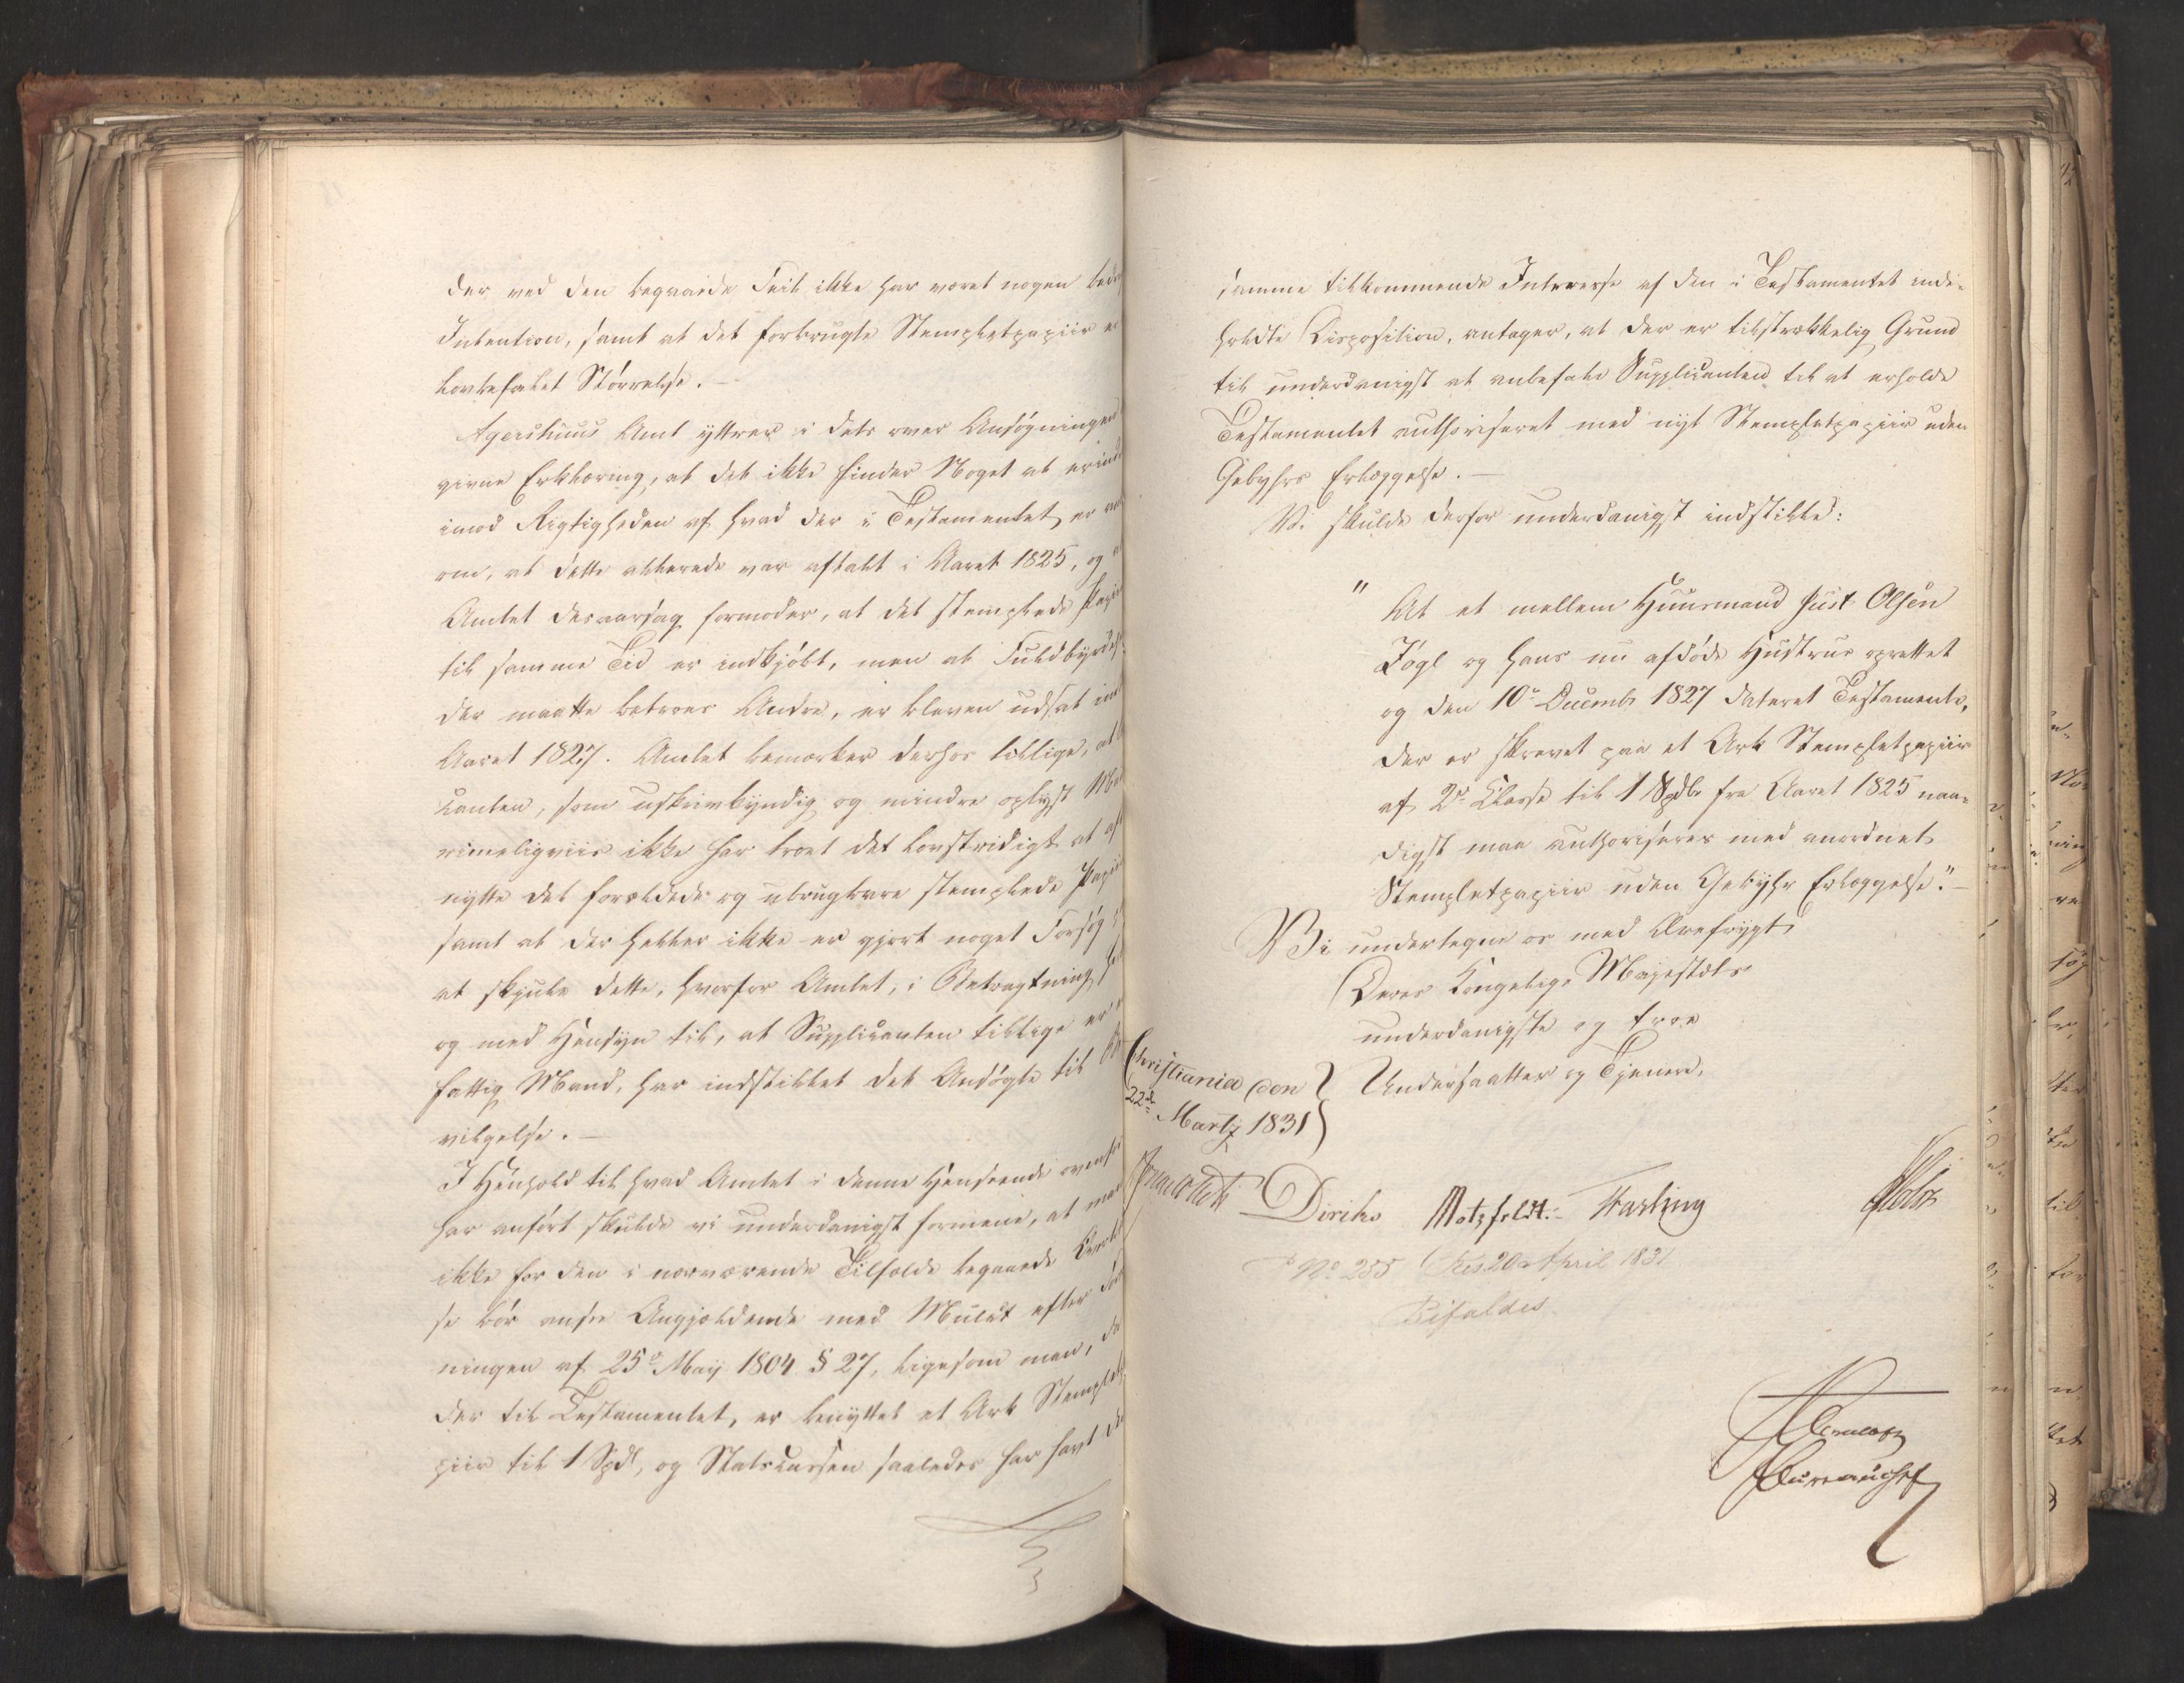 der ved den begaaede Feil ikke har været nogen
Intention, samt at det forbrugte Stempletpapiir er
lovbefalet Størrelse.—
Agershuus Amt yttrer i dets over Ansøgningen
givne Erklæring, at det ikke finder Noget at
imod Rigtigheden af hvad der i Testamentet er
om, at dette allerede var aftalt i Aaret 1825, og
Amtet desaarsag formoder, at det stemplede
til samme Tid er indkjøbt, men at
der maatte betroes Andre, er bleven udsat
Aaret 1827. Amtet bemærker derhos tillige, at
canten, som uskrivkyndig og mindre oplyst
rimeligviis ikke har troet det lovstridigt at
nytte det forældede og ubrugbare stemplede
samt at der heller ikke er gjort noget Forsøg
at skjule dette, hvorfor Amtet, i Betragtning
og med Hensyn til, at Supplicanten tillige er
fattig Mand, har indstillet det Ansøgte til
vilgelse.—
I Henhold til hvad Amtet i denne Henseende
har anført skulde vi underdanigst formene, at man
ikke for den i nærværende Tilfælde begaaede
se bør ansee Angjeldende med Mulct efter
ningen af 25de May 1804 § 27, ligesom man,
der til Testamentet, er benyttet et Ark
piir til 1 Spd, og Statscassen saaledes har havt
samme tilkommende Interesse af den i Testamentet inde-
holdte Disposition, antager, at der er tilstrækkelig Grund
til underdanigst at anbefale Supplicanten til at erholde
Testamentet authoriseret med nyt Stempletpapiir uden
Gebyhrs Erlæggelse.—
Vi skulde derfor underdanigst indstille:
" At et mellem Huusmand Just Olsen
og hans nu afdøde Hustrue oprettet
og den 10de Decembr 1827 dateret Testamente,
der er skrevet paa et Ark Stempletpapiir
af 2de Classe til 1 Spdlr fra Aaret 1825 naa-
digst maa authoriseres med anordnet
Stempletpapiir uden Gebyhr Erlæggelse."—
Vi undertegne os med Ærefrygt
Deres Kongelige Majestæts
underdanigste og troe
Undersaatter og Tjenere.
Christiania den
22de Martz 1831
Diriks Motzfeldt.
No 255 Res 20 April 1831
Bifaldes
Bureauchef